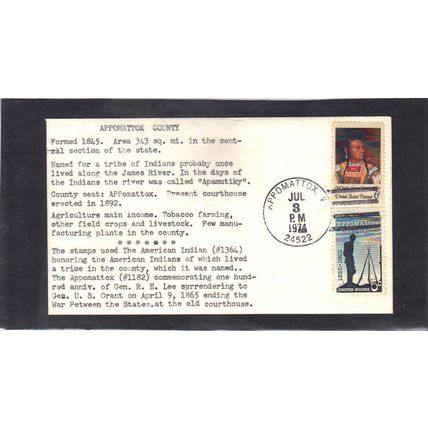 APPOMATTOX COUNTY
Formed 1845. Area 343 sq. mi. in the cent-
ral section of the state.
Named for a tribe of Indians probaby once
lived along the James River. In the days of
the Indians the river was called "Apamutiky".
County seat: APPomattox. Present courthouse
erected in 1892.
Agriculture main income. Tobacco farming,
other field crops and livestock. Few manu-
facturing plants in the county.
* * * * * * *
The stamps used The American Indian (#1364)
honoring the American Indians of which lived
a tribe in the county, which it was named..
The Appomattox (#1182) commemorating one hund-
red anniv. of Gen. R. E. Lee surrendering to
Gen. U. S. Grant on April 9, 1865 ending the
War Between the States.at the old courthouse.
APPOMATTOX, V
JUL
3
PM
1974
24522
United States Postage 6c
APPOMATTOX
1865-1965
UNITED STATES 5c